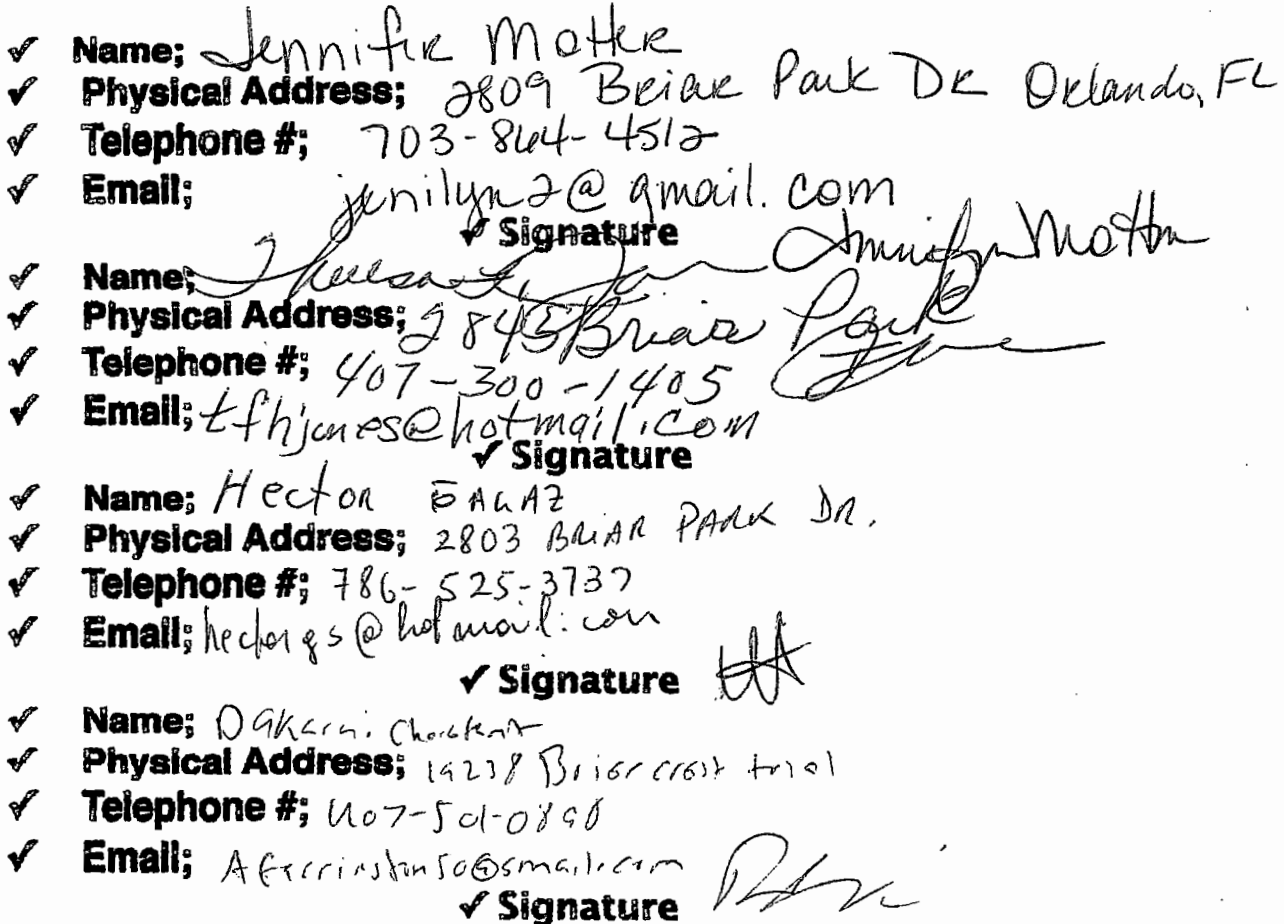 ✔ Name; Jennifer Motter
✔ Physical Address; 2809 Briar Park DR Orlando, FL
✔ Telephone #; 703-864-4512
✔ Email; jenilyn2@gmail.com
✔ Signature Jennifer Motter
✔ Name; Theresa
✔ Physical Address; 2845 Briar Park
✔ Telephone #; 407-300-1405
✔ Email; tfhjones@hotmail.com
✔ Signature
✔ Name; Hector
✔ Physical Address; 2803 BRIAR PARK DR.
✔ Telephone #; 786-525-3737
✔ Email; hectorgs@hotmail.com
✔ Signature
✔ Name; Dakarai
✔ Physical Address; Briercrest trail
✔ Telephone #;
✔ Email;
✔ Signature